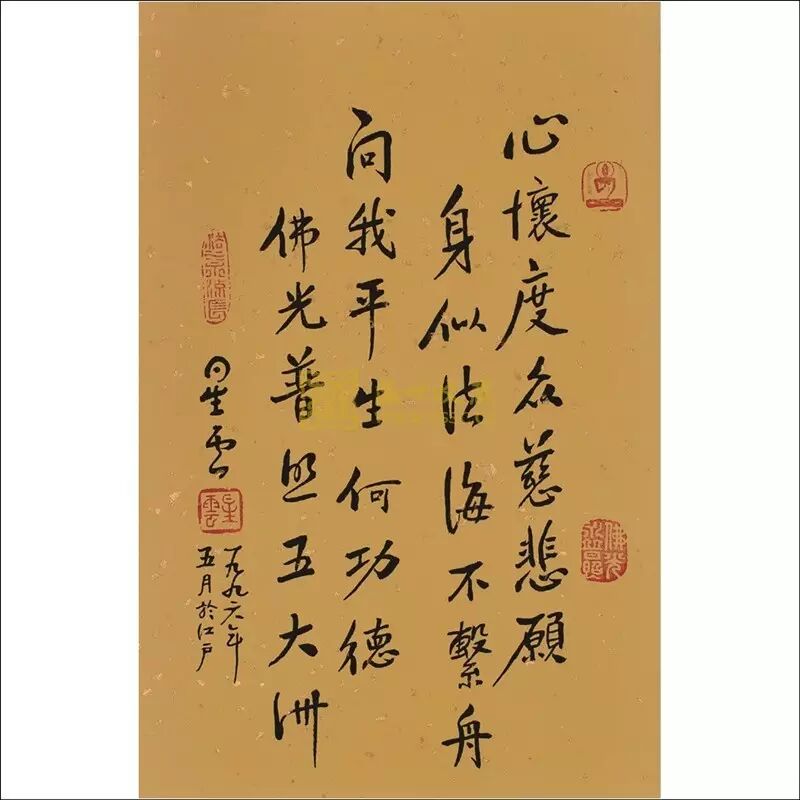 心懷度众慈悲願
身似法海不繫舟
问我平生何功德
佛光普照五大洲
星雲
星雲
一九九六年
五月於江戸